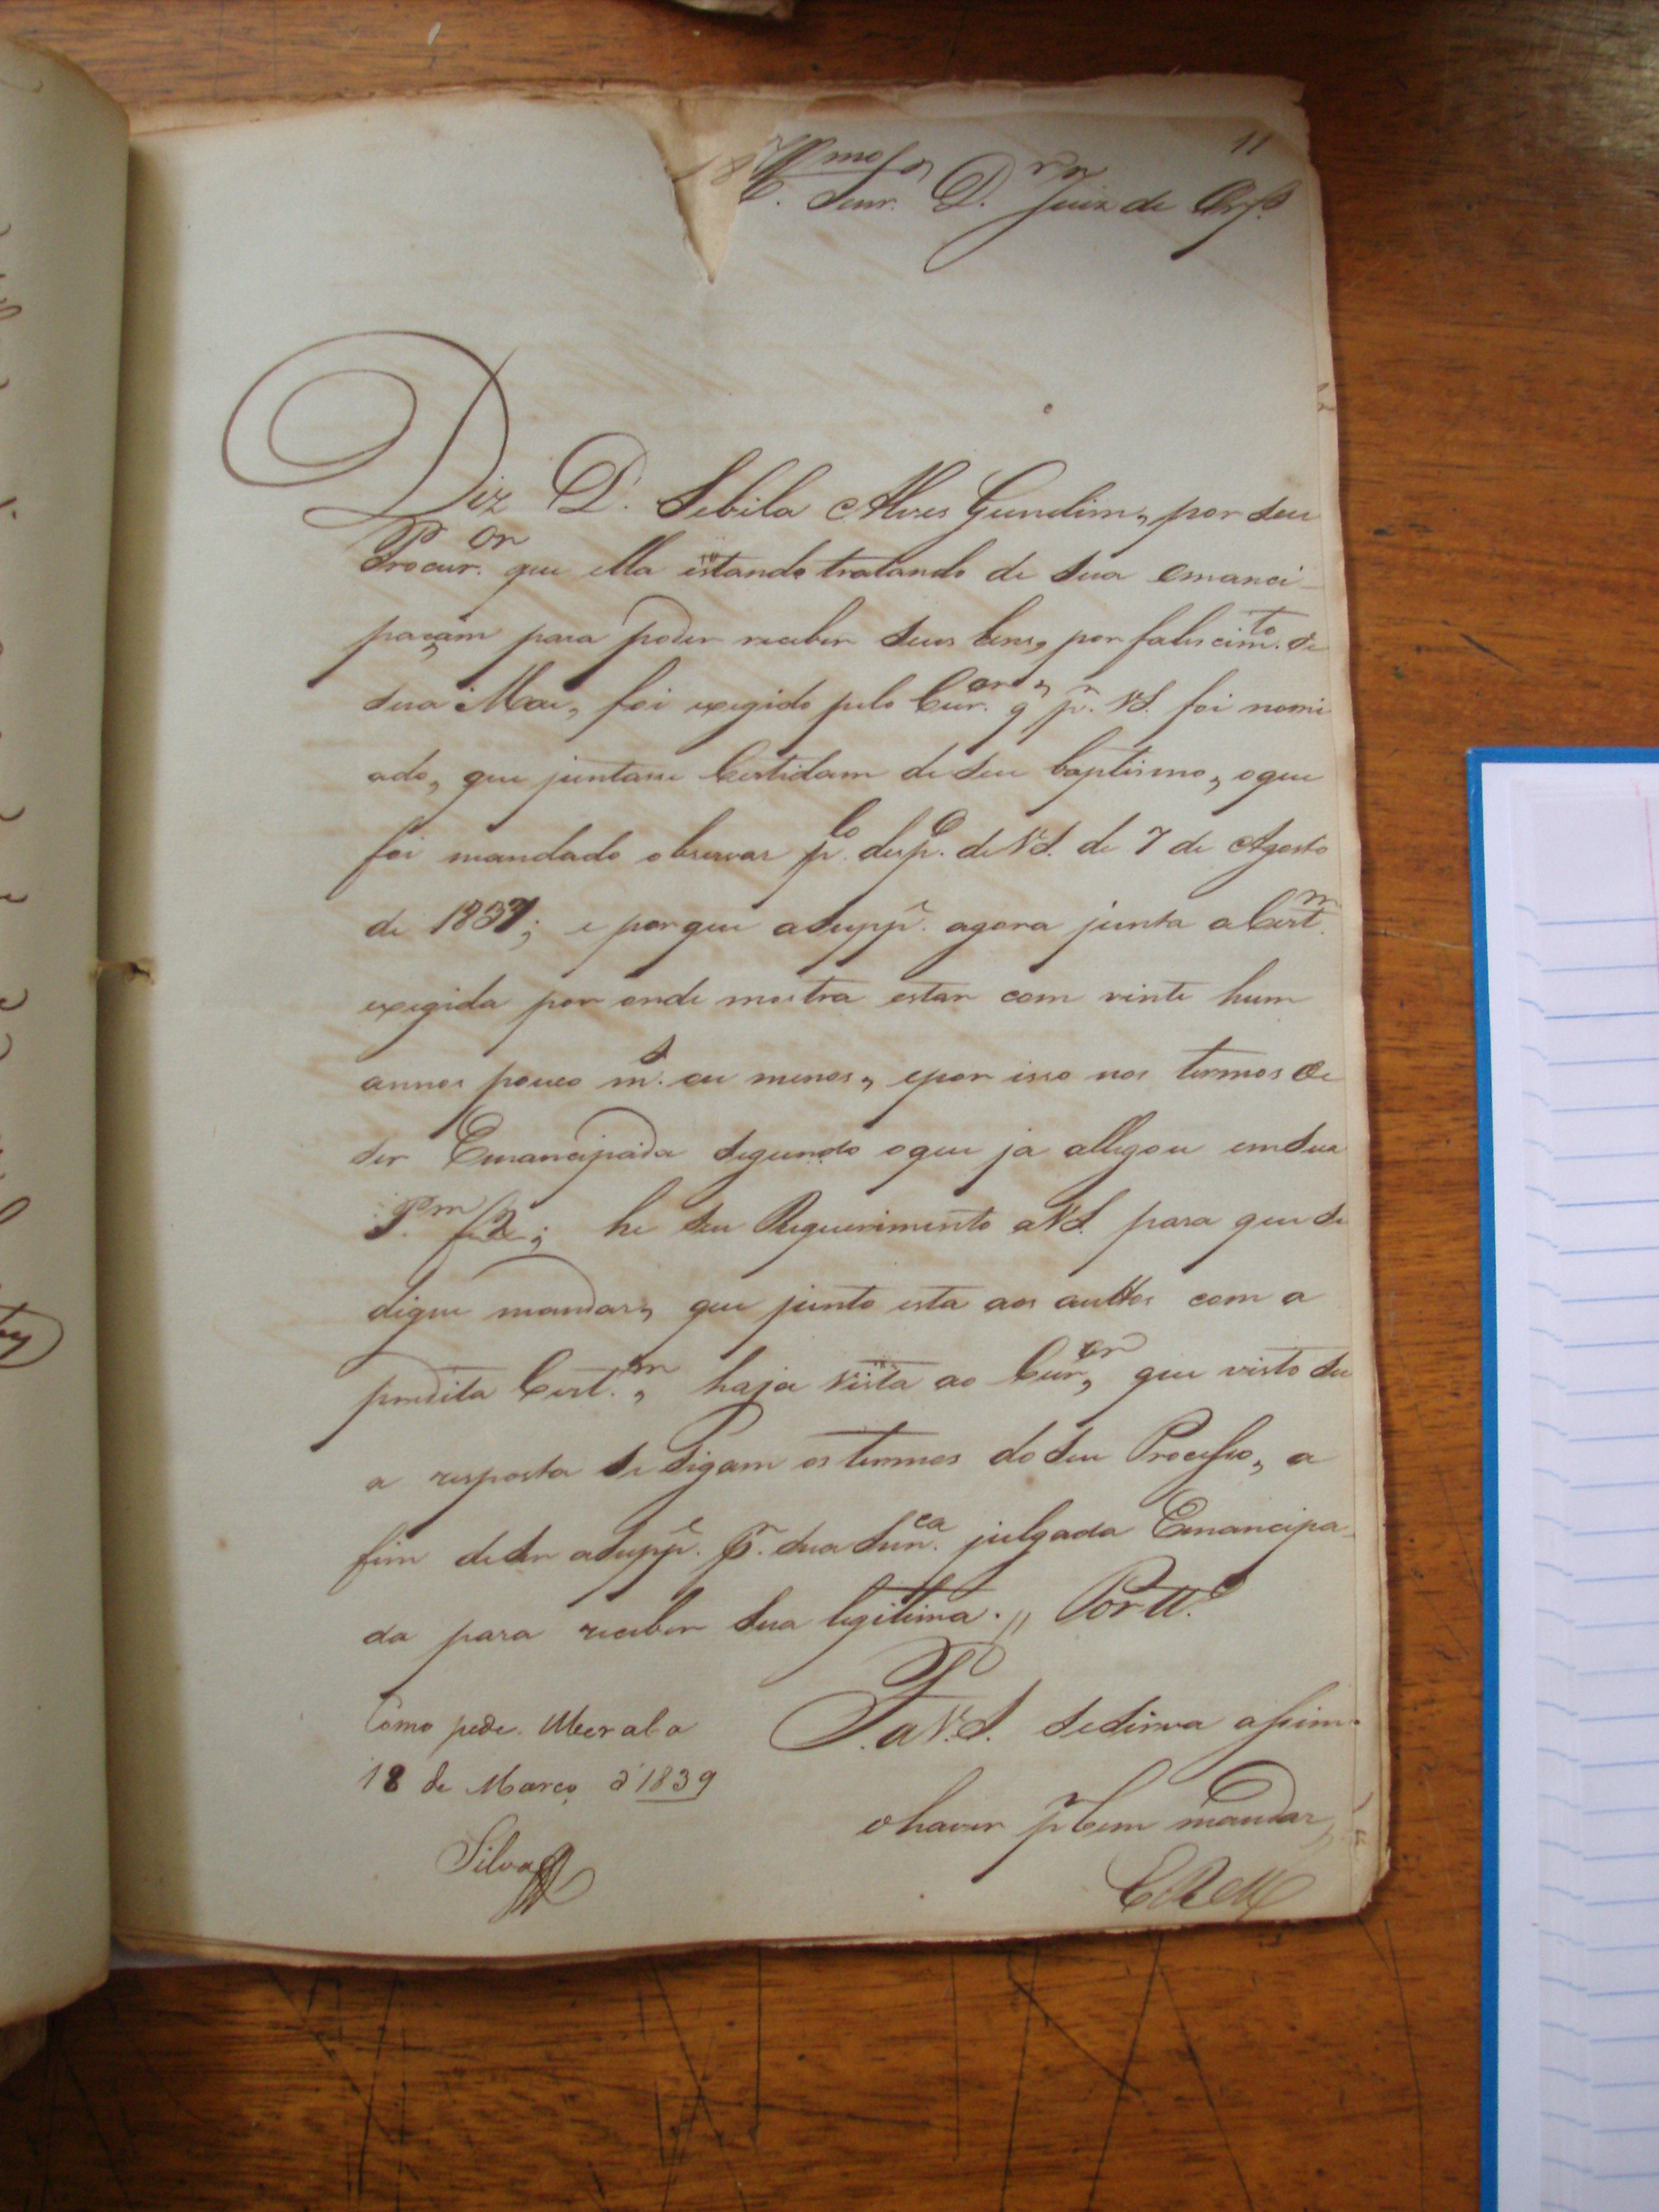 11
Ill.mo Senr. Dr. Juiz de Orf.
Diz D. Sebila Alves Gundim, por seu
Procur.or que ella estando tratando de sua emanci-
paçam para poder receber seus bens, por falescim.to de
sua Mai, foi exegido pelo Cur.or, q̃ p.r V.S. foi nomi
ado, que juntasse Certidam de seu baptismo, o que
foi mandado observar p.lo desp.o de V.S. de 7 de Agosto
de 1837; e porque a Supp.e agora junta a Cert.m
exegida por onde mostra estar com vinte hum
annos pouco m.s ou menos, e por isso nos termos de
ser Emancipada segundo o que ja allegou em sua
P.m f 2; he seu Requerimento a V.S. para que se
digne mandar, que junto esta aos auttos com a
predita Cert.m, haja vista ao Cur.or, que visto su
a resposta se sigam os termos do seu Processo, a
fim de ser a Supp.e p.r sua Sen.ca julgada Emancipa-
da para receber sua legitima. // Por tt.o
P. a V.S. se sirva assim
o haver p.r bem mandar,
E R M
Como pede. Uberaba
18 de Março d' 1839
Silva